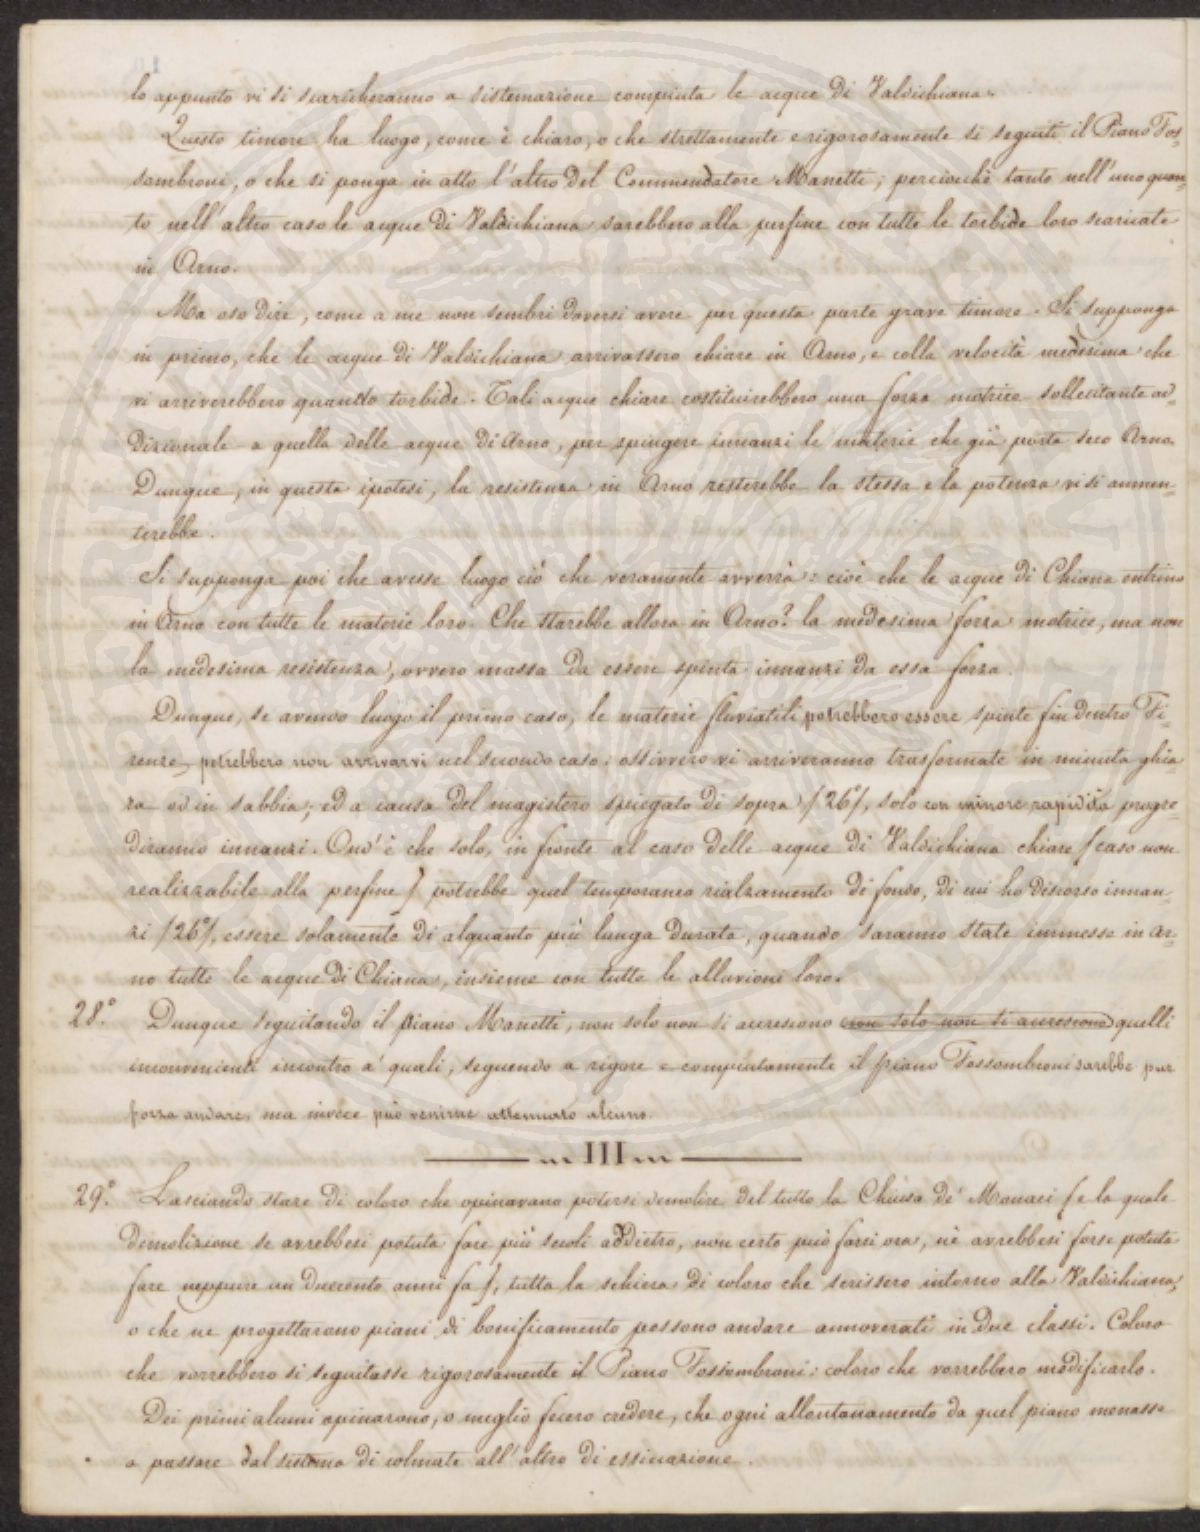 lo appunto vi si scaricheranno a sistemazione compiuta le acque di Valdichiana.
Questo timore ha luogo, come è chiaro, o che strettamente e rigorosamente si seguiti il Piano Fos=
sombroni, o che si ponga in atto l'altro del Commendatore Manetti; perciocchè tanto nell'uno quan=
to nell'altro caso le acque di Valdichiana sarebbero alla perfine con tutte le torbide loro scaricate
in Arno.
Ma oso dire, come a me non sembri doversi avere per questa parte grave timore. Si supponga
in primo, che le acque di Valdichiana arrivassero chiare in Arno, e colla velocità medesima che
vi arriverebbero quando torbide. Tali acque chiare costituirebbero una forza motrice sollecitante ad=
dizionale a quella delle acque di Arno, per spingere innanzi le materie che già porta seco Arno.
Dunque, in questa ipotesi, la resistenza in Arno resterebbe la stessa e la potenza vi si aumen=
terebbe.
Si supponga poi che avesse luogo ciò che veramente avverrà: cioè che le acque di Chiana entrino
in Arno con tutte le materie loro. Che starebbe allora in Arno? la medesima forza motrice, ma non
la medesima resistenza, ovvero massa da essere spinta innanzi da essa forza.
Dunque, se avendo luogo il primo caso, le materie fluviatili potrebbero essere spinte fin dentro Fi=
renze, potrebbero non arrivarvi nel secondo caso: ossivvero vi arriveranno trasformate in minuta ghia=
ra od in sabbia; ed a causa del magistero spiegato di sopra (26°), solo con minore rapidità progre=
diranno innanzi. Ond'è che solo, in fronte al caso delle acque di Valdichiana chiare (caso non
realizzabile alla perfine) potrebbe quel temporaneo rialzamento di fondo, di cui ho discorso innan=
zi (26°), essere solamente di alquanto più lunga durata, quando saranno state immesse in Ar=
no tutte le acque di Chiana, insieme con tutte le alluvioni loro.
28.° Dunque seguitando il piano Manetti, non solo non si accrescono non solo non si accrescono quelli
inconvenienti incontro a' quali, seguendo a rigore e compiutamente il piano Fossombroni sarebbe pur
forza andare, ma invece può venirne attenuato alcuno.
III
29.° Lasciando stare di coloro che opinavano potersi demolire del tutto la Chiusa de' Monaci (e la quale
demolizione se avrebbesi potuta fare più secoli addietro, non certo può farsi ora, nè avrebbesi forse potuta
fare neppure un duecento anni fa), tutta la schiera di coloro che scrissero intorno alla Valdichiana,
o che ne progettarono piani di bonificamento possono andare annoverati in due classi. Coloro
che vorrebbero si seguitasse rigorosamente il Piano Fossombroni: coloro che vorrebbero modificarlo.
Dei primi alcuni opinarono, o meglio fecero credere, che ogni allontanamento da quel piano menasse
a passare dal sistema di colmate all'altro di essiccazione.